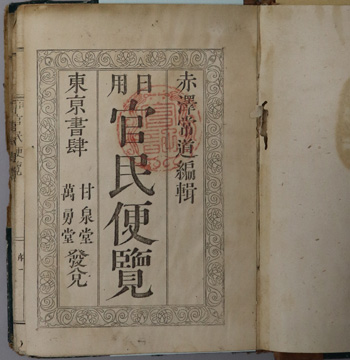 赤澤常道編輯
日用
官民便覽
東京書肆
甘泉堂
萬勇堂
發兌
官民便覽